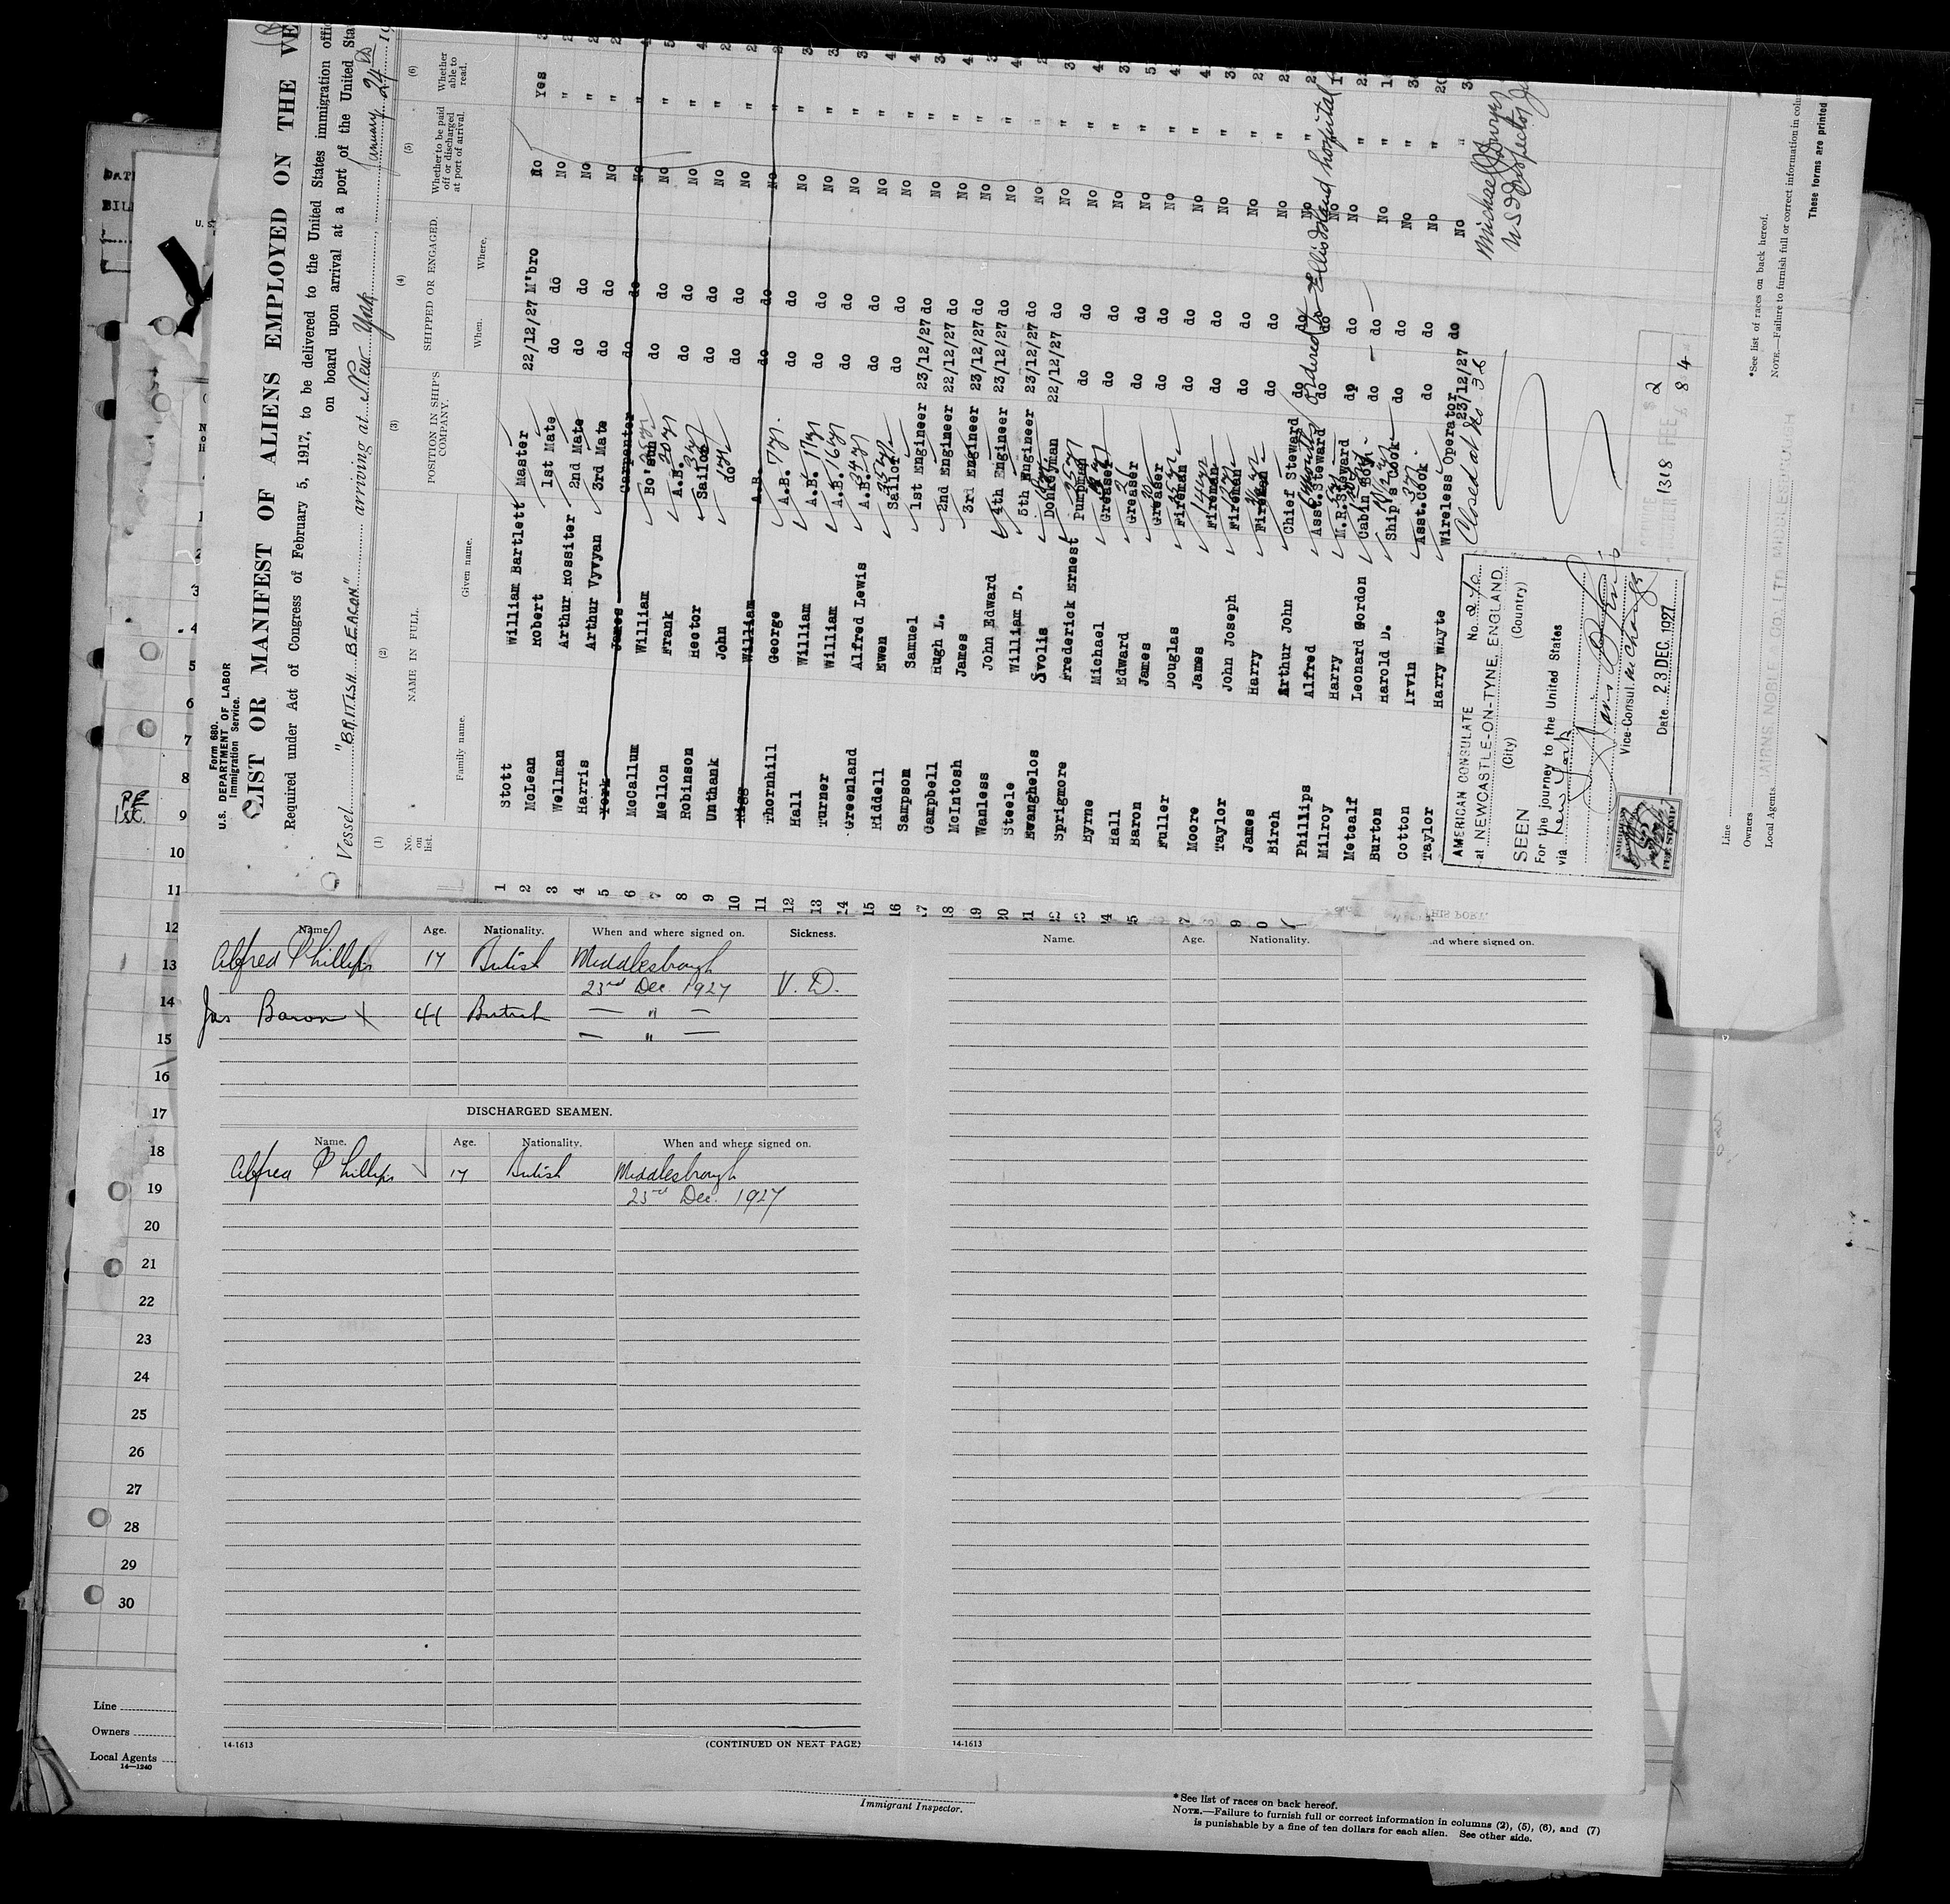 Form 680.
U.S. DEPARTMENT OF LABOR
Immigration Service.
LIST OR MANIFEST OF ALIENS EMPLOYED ON THE VE
Required under Act of Congress of February 5, 1917, to be delivered to the United States immigration offic
on board upon arrival at a port of the United Sta
Vessel "BRITISH BEACON" arriving at New York, January 24
(1) (2) (3) (4) (5) (6)
No. on list. NAME IN FULL. POSITION IN SHIP'S COMPANY. SHIPPED OR ENGAGED. Whether to be paid off or discharged at port of arrival. Whether able to read.
Family name. Given name. When. Where.
1 Stott William Bartlett Master 22/12/27 M'bro No Yes
2 McLean Robert 1st Mate do do No "
3 Wellman Arthur Rossiter 2nd Mate do do No "
4 Harris Arthur Vyvyan 3rd Mate do do No "
5 York James Carpenter do do No "
6 McCallum William Bo'sun do do No "
7 Mellon Frank A.B. do do No "
8 Robinson Hector Sailor do do No "
9 Unthank John do do do No "
10 Rigg William A.B. do do No "
11 Thornhill George A.B. 7 yr. do do No "
12 Hall William A.B. 17 yr do do No "
13 Turner William A.B. 16 yr do do No "
14 Greenland Alfred Lewis A.B. do do No "
15 Riddell Ewen Sailor do do No "
16 Sampson Samuel 1st Engineer 23/12/27 do No "
17 Campbell Hugh L. 2nd Engineer 22/12/27 do No "
18 McIntosh James 3rd Engineer 23/12/27 do No "
19 Wanless John Edward 4th Engineer 23/12/27 do No "
20 Steele William D. 5th Engineer 23/12/27 do No "
21 Evanghelos Svolis Donkeyman 22/12/27 do No "
22 Sprigmore Frederick Ernest Pumpman do do No "
23 Byrne Michael Greaser do do No "
24 Hall Edward Greaser do do No "
25 Baron James Greaser do do No "
Fuller Douglas Fireman do do No "
Moore James Fireman do do No "
Taylor John Joseph Fireman do do No "
James Harry Fireman do do No "
Birch Arthur John Chief Steward do do No "
Phillips Alfred Asst.Steward do do No "
Milroy Harry M.R.Steward do do No "
Metcalf Leonard Gordon Cabin Boy do do No "
Burton Harold D. Ship's Cook do do No "
Cotton Irvin Asst.Cook do do No "
Taylor Harry Whyte Wireless Operator 23/12/27 do No "
Ordered to Ellis Island hospital
Closed at No 36
AMERICAN CONSULATE No.
at NEWCASTLE-ON-TYNE, ENGLAND.
(City) (Country)
SEEN
For the journey to the United States
via New York
Vice-Consul in charge
Date 23 DEC. 1927
1318 FEE £ 8 4
*See list of races on back hereof.
NOTE.—Failure to furnish full or correct information in colu
These forms are printed
Line
Owners
Local Agents
Name. Age. Nationality. When and where signed on. Sickness.
Alfred Phillips 17 British Middlesbrough
23rd Dec. 1927 V. D.
Jas Baron X 41 British — " —
— " —
DISCHARGED SEAMEN.
Name. Age. Nationality. When and where signed on.
Alfred Phillips 17 British Middlesbrough
23rd Dec. 1927
14-1613 (CONTINUED ON NEXT PAGE)
Name. Age. Nationality. nd where signed on.
14-1613
1
2
3
4
5
6
7
8
9
10
11
12
13
14
15
16
17
18
19
20
21
22
23
24
25
26
27
28
29
30
Line
Owners
Local Agents
14—1240
Immigrant Inspector.
*See list of races on back hereof.
NOTE.—Failure to furnish full or correct information in columns (2), (5), (6), and (7)
is punishable by a fine of ten dollars for each alien. See other side.